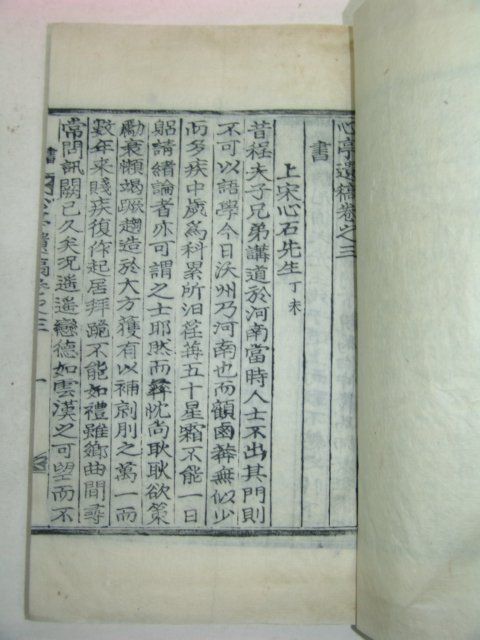 心亭遺稿卷之三
書
上宋心石先生 丁未
昔程夫子兄弟講道於河南當時人士不出其門則
不可以語學今日沃州乃河南也而顧鹵莽無似少
而多疾中歲爲科累所汩荏苒五十星霜不能一日
躬請緖論者亦可謂之士耶然而彛忱尙耿耿欲策
勵衰懶竭蹶趨造於大方獲有以補剠刖之萬一而
數年來賤疾復作起居拜跪不能如禮雖鄕曲間尋
常問訊闕已久矣況遙遙戀德如雲漢之可望而不
書 心亭遺稿卷之三 一